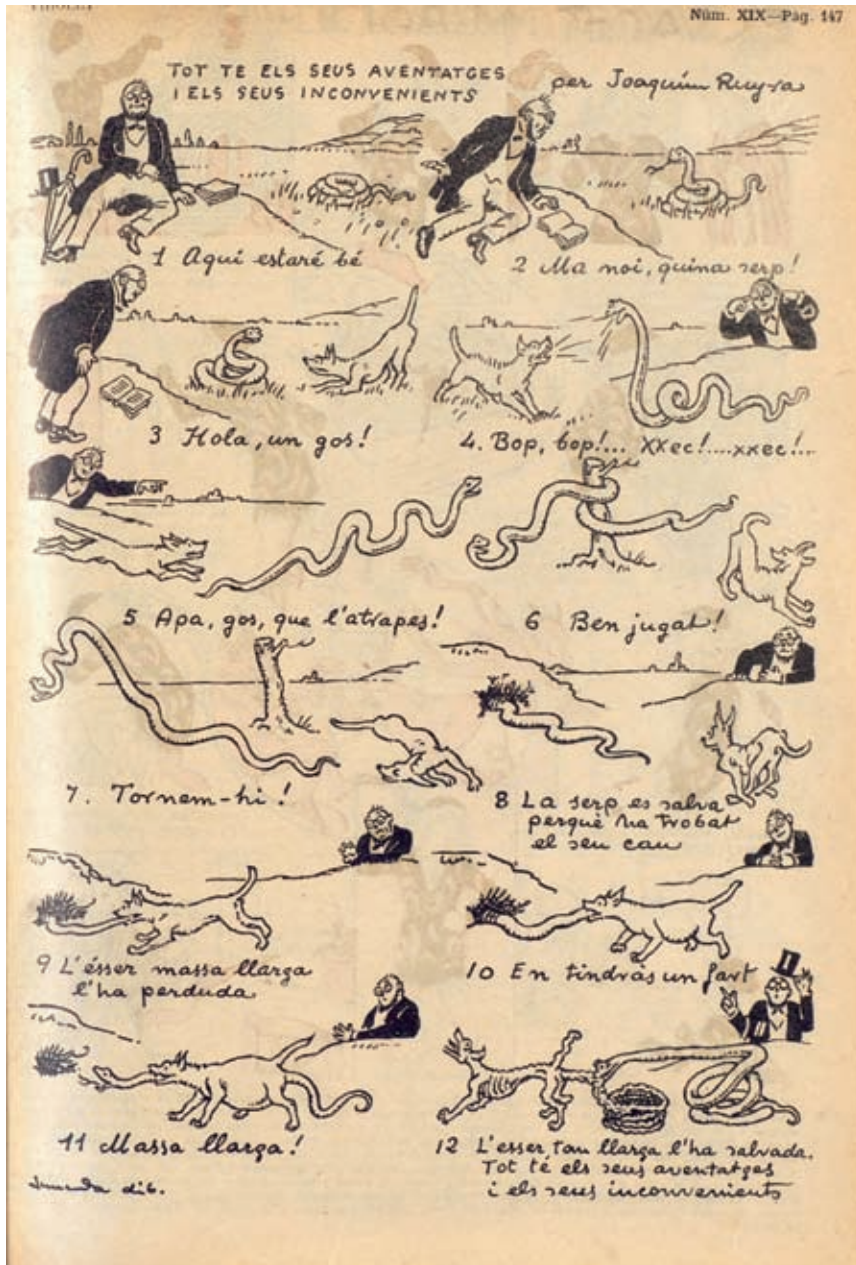 VIROLET
Núm. XIX—Pág. 147
TOT TE ELS SEUS AVENTATGES
I ELS SEUS INCONVENIENTS
per Joaquim Ruyra
1 Aquí estaré bé
2 Ma noi, quina serp!
3 Hola, un gos!
4. Bop, bop!... XXec!....xxec!...
5 Apa, gos, que l'atrapes!
6 Ben jugat!
7. Tornem-hi!
8 La serp es salva
perquè ha trobat
el seu cau
9 L'ésser massa llarga
l'ha perduda
10 En tindràs un fart
11 Massa llarga!
12 L'esser tan llarga l'ha salvada.
Tot té els seus aventatges
i els seus inconvenients
dib.